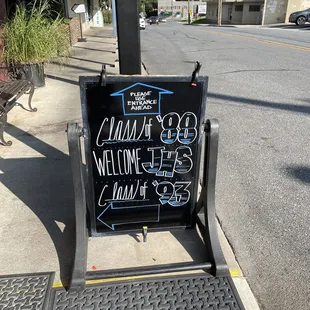 PLEASE
USE
ENTRANCE
AHEAD
Class of '88
WELCOME JHS
Class of '93